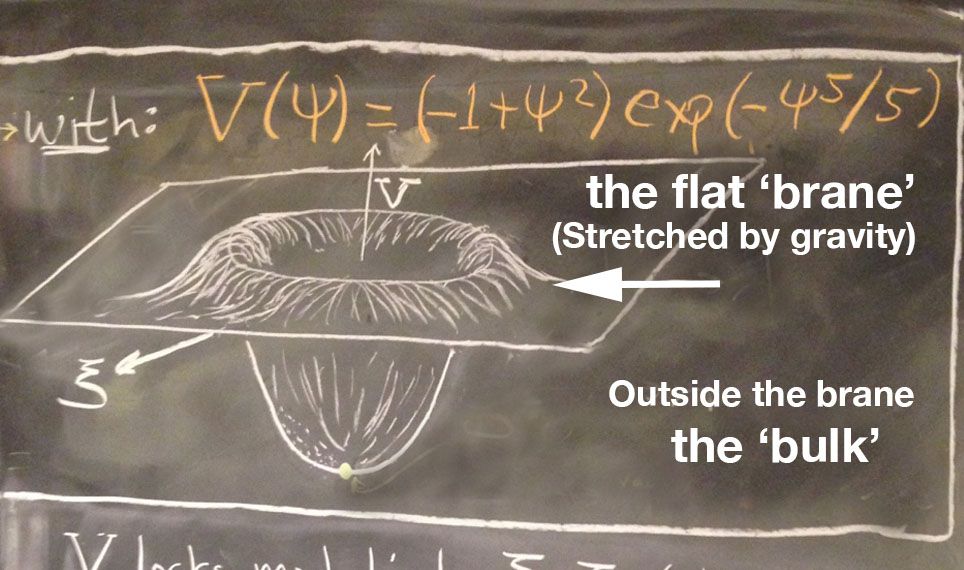 →with: V(Ψ)=(-1+Ψ²) exp(-Ψ⁵/5)
V
the flat ‘brane’
(Stretched by gravity)
ξ
Outside the brane
the ‘bulk’
V locks